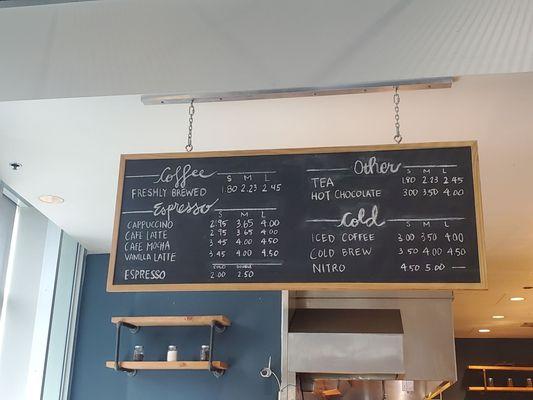 Coffee S M L
FRESHLY BREWED 1.80 2.23 2.45
Espresso S M L
CAPPUCCINO 2.95 3.65 4.00
CAFE LATTE 2.95 3.65 4.00
CAFE MOCHA 3.45 4.00 4.50
VANILLA LATTE 3.45 4.00 4.50
SOLO DOUBLE
ESPRESSO 2.00 2.50
Other S M L
TEA 1.80 2.23 2.45
HOT CHOCOLATE 3.00 3.50 4.00
Cold S M L
ICED COFFEE 3.00 3.50 4.00
COLD BREW 3.50 4.00 4.50
NITRO 4.50 5.00 —